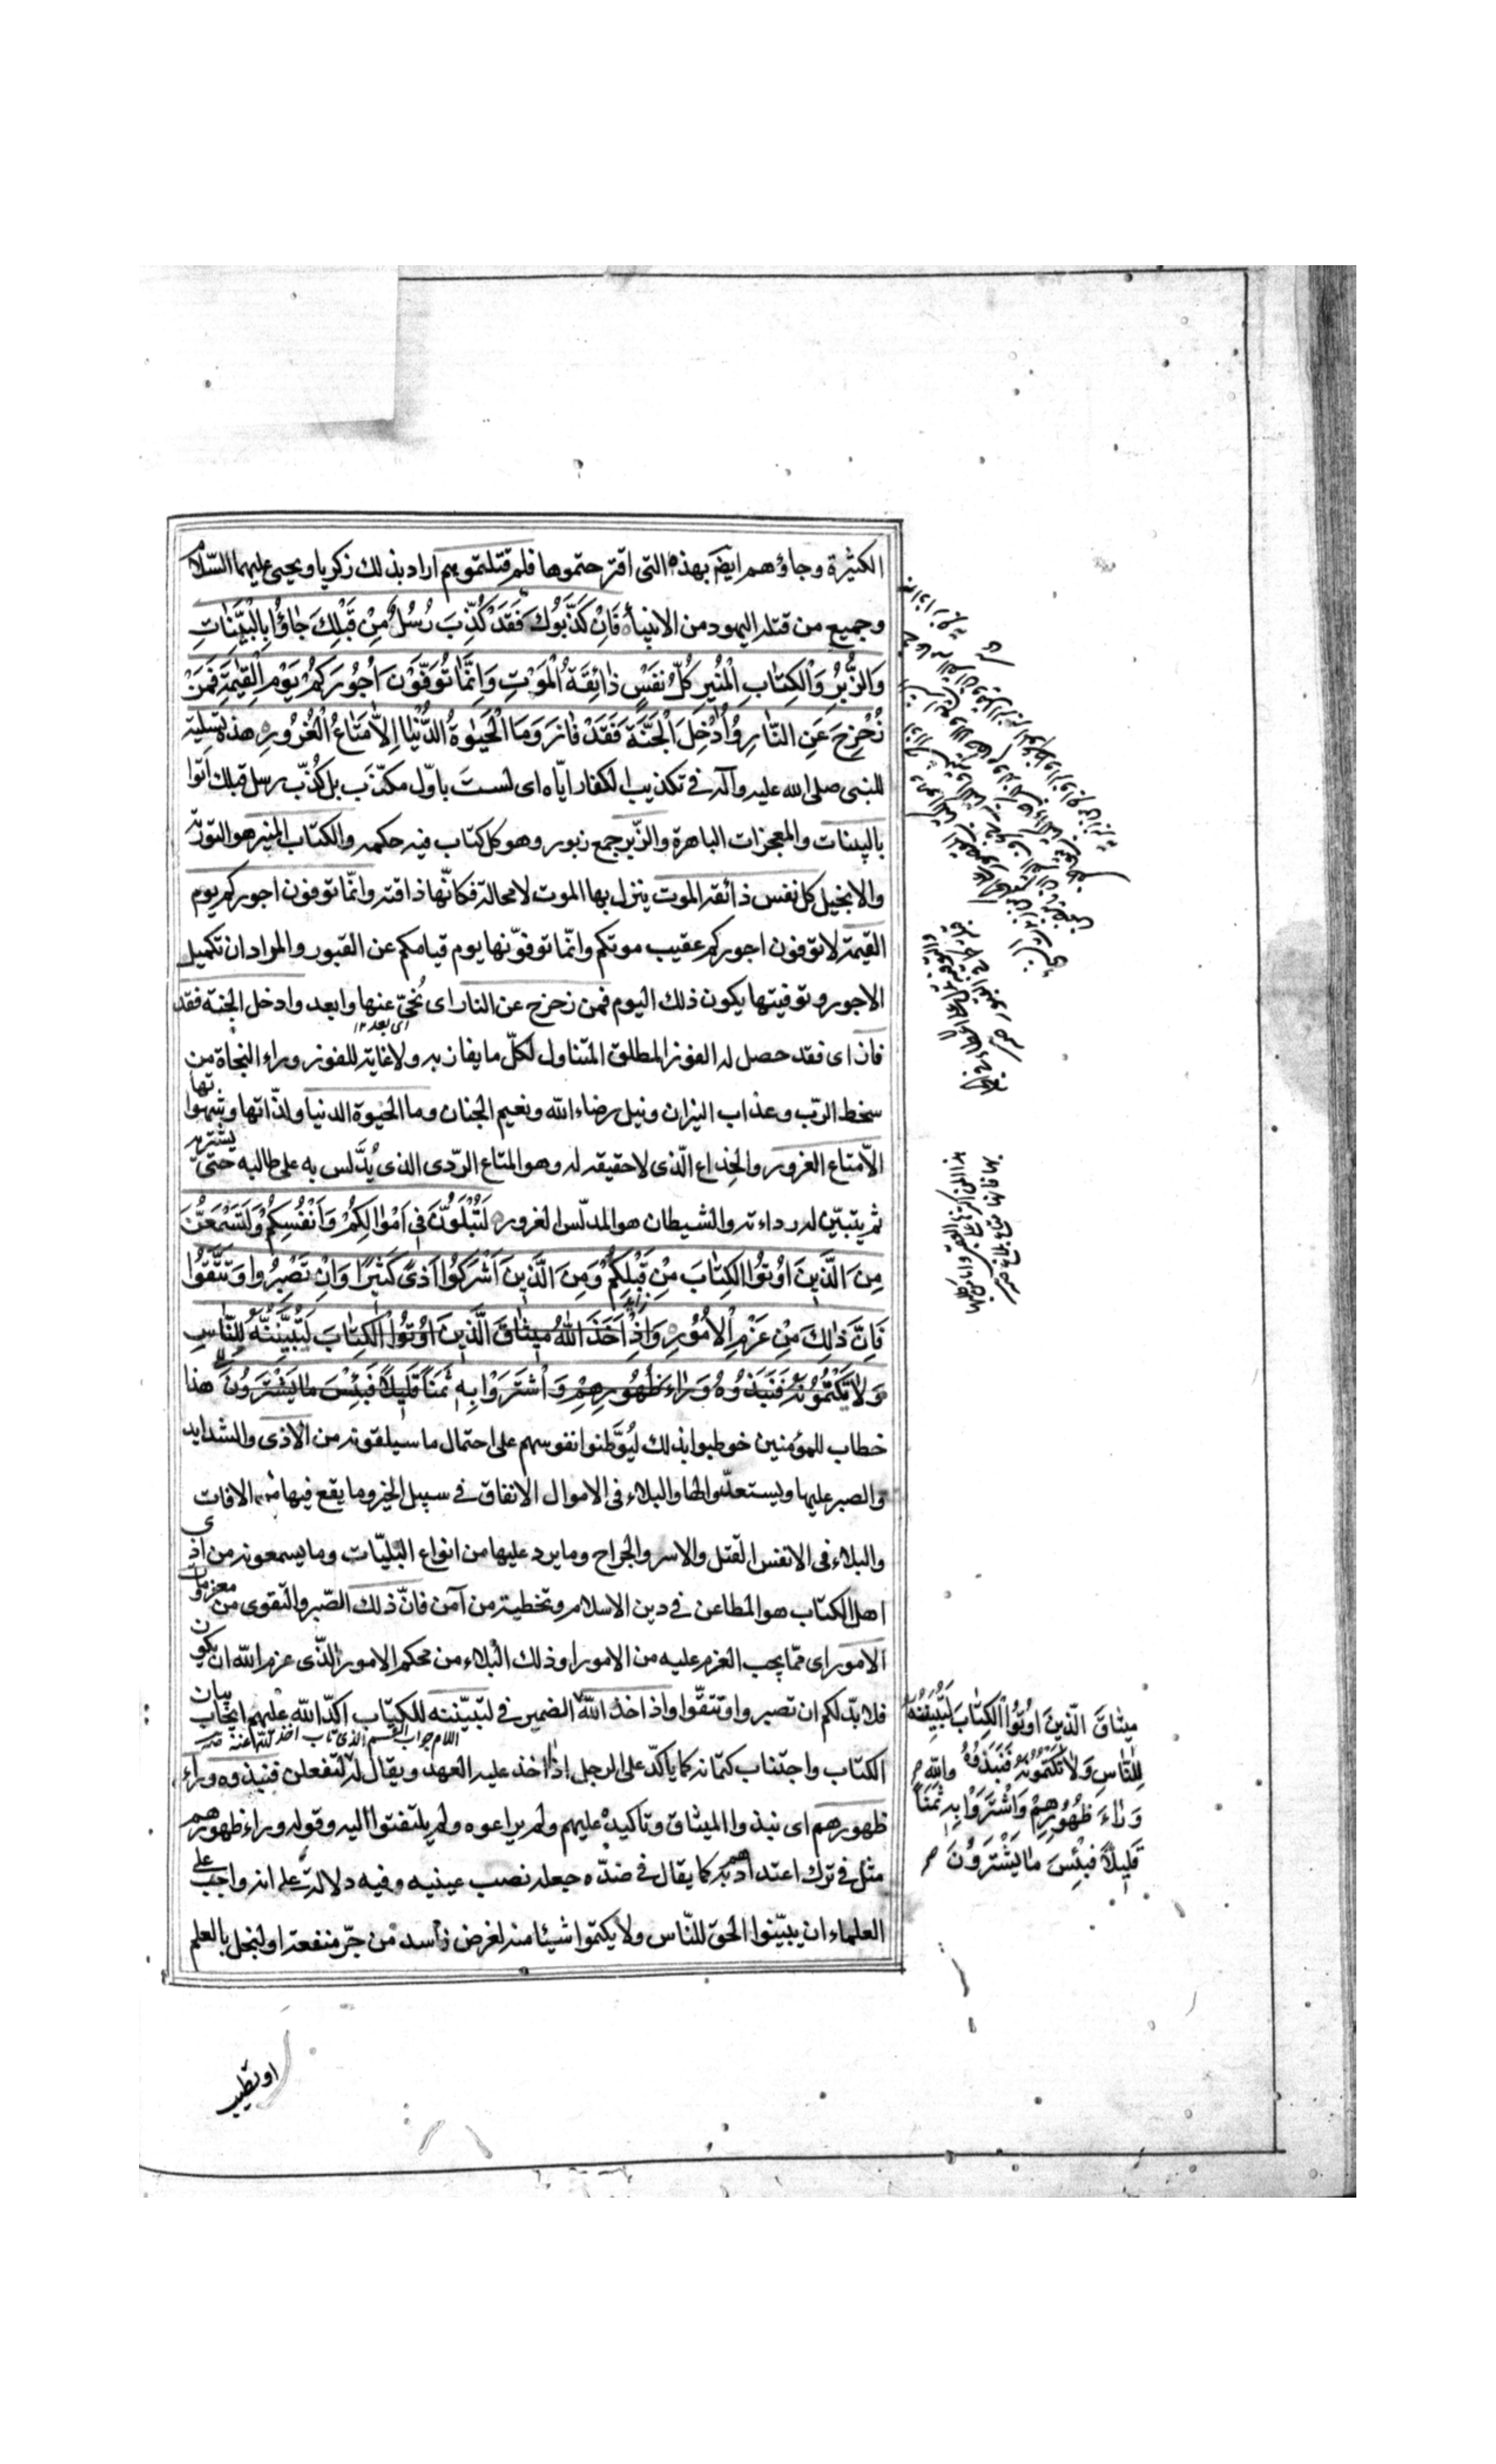 الكثيرة وجاؤهم ايضا بهذه التى اقترحتموها فلم قتلتموهم اراد بذلك زكريا ويحيى عليهما السّلام
وجميع من قتله اليهود من الانبيآء فَاِنْ كَذَّبُوكَ فَقَدْ كُذِّبَ رُسُلٌ مِنْ قَبْلِكَ جٰاؤُا بِالْبَيِّنٰاتِ
وَالزُّبُرِ وَالْكِتٰابِ الْمُنيرِ كُلُّ نَفْسٍ ذٰائِقَةُ الْمَوْتِ وَاِنَّمٰا تُوَفَّوْنَ اُجُورَكُمْ يَوْمَ الْقِيٰمَةِ فَمَنْ
زُحْزِحَ عَنِ النّٰارِ وَاُدْخِلَ الْجَنَّةَ فَقَدْ فٰازَ وَمَا الْحَيٰوةُ الدُّنْيٰا اِلاّٰ مَتٰاعُ الْغُرُورِ هذه تسلية
للنبى صلى الله عليه وآله فى تكذيب الكفار ايّاه اى لستَ باوّل مكذّب بل كُذّب رسل قبلك اتوا
بالبينات والمعجزات الباهرة والزّبر جمع زبور وهو كل كتاب فيه حكمه والكتاب المنير هو التورية
والانجيل كل نفس ذائقه الموت ينزل بها الموت لامحالة فكانّها ذاقته وانّما توفون اجوركم يوم
القيمة لاتوفون اجوركم عقيب موتكم وانّما توفّونها يوم قيامكم عن القبور والمراد ان تكميل
الاجور وتوفيتها يكون ذلك اليوم فمن زحزح عن النار اى نُحّىَ عنها وابعد وادخل الجنة فقد
اى بعد ١٢
فاز اى فقد حصل له الفوز المطلق المتناول لكلّ ما يفاز به ولا غاية للفوز وراء النجاة من
سخط الربّ وعذاب النيران ونيل رضاء الله ونعيم الجنان وما الحيوة الدنيا ولذّاتها وشهواتها
الاّ متاع الغرور والخداع الّذى لاحقيقه له وهو المتاع الرّدى الذى يُدَّلس به على طالبه حتى يشتريه
ثم يتبيّن له رداءته والشيطان هو المدلّس الغرور لَتُبْلَوُنَّ فى اَمْوٰالِكُمْ وَاَنْفُسِكُمْ وَلَتَسْمَعُنَّ
مِنَ الَّذينَ اوُتُوا الْكِتٰابَ مِنْ قَبْلِكُمْ وَمِنَ الَّذينَ اَشْرَكُوا اَذىً كَثيرًا وَاِنْ تَصْبِرُوا وَتَتَّقُوا
فَاِنَّ ذٰلِكَ مِنْ عَزْمِ الْاُمُورِ وَاِذْ اَخَذَ اللهُ ميثٰاقَ الَّذينَ اوُتُوا الْكِتٰابَ لَتُبَيِّنُنَّهُ لِلنّٰاسِ
وَلاٰ تَكْتُمُونَهُ فَنَبَذُوهُ وَرٰاءَ ظُهُورِهِمْ وَاشْتَرَوْا بِهِ ثَمَناً قَليلاً فَبِئْسَ مٰا يَشْتَرُونَ هذا
خطاب للمؤمنين خوطبوا بذلك ليُوَّطنوا نفوسهم على احتمال ما سيلقونه من الاذى والشدايد
والصبر عليها ويستعدّوا لها والبلاء فى الاموال الانفاق فى سبيل الخير وما يقع فيها من الافات
والبلاء فى الانفس القتل والاسر والجراح وما يرد عليها من انواع البليّات وما يسمعونه من اذى
اهل الكتاب هو المطاعن فى دين الاسلام وتخطية من آمن فانّ ذلك الصّبر والتقوى من معزومات
الامور اى ممّا يجب العزم عليه من الامور او ذلك البلاء من محكم الامور الّذى عزم الله ان يكون
فلا بدّ لكم ان تصبروا وتتّقوا واذ اخذ الله الضمير فى لتبيّننه للكتاب اكدّ الله عليهم ايجاب بيان
الكتاب واجتناب كتمانه كما ياكدّ على الرجل اذا اخذ عليه العهد ويقال له لتفعلن فنبذوه وراء
ظهورهم اى نبذوا الميثاق وتاكيده عليهم ولم يراعوه ولم يلتفتوا اليه وقوله وراء ظهورهم
مثل فى ترك اعتدادهم به كما يقال فى ضدّه جعله نصب عينيه وفيه دلالة على انه واجب على
العلماء ان يبيّنوا الحق للنّاس ولا يكتموا شيئا منه لغرض فاسد من جرّ منفعة او لبخل بالعلم
ميثٰاقَ الَّذينَ اوُتُوا الْكِتٰابَ لَتُبَيِّنُنَّهُ
لِلنّٰاسِ وَلاٰ تَكْتُمُونَهُ فَنَبَذُوهُ
وَرٰاءَ ظُهُورِهِمْ وَاشْتَرَوْا بِهِ ثَمَناً
قَليلاً فَبِئْسَ مٰا يَشْتَرُونَ
او تطيب